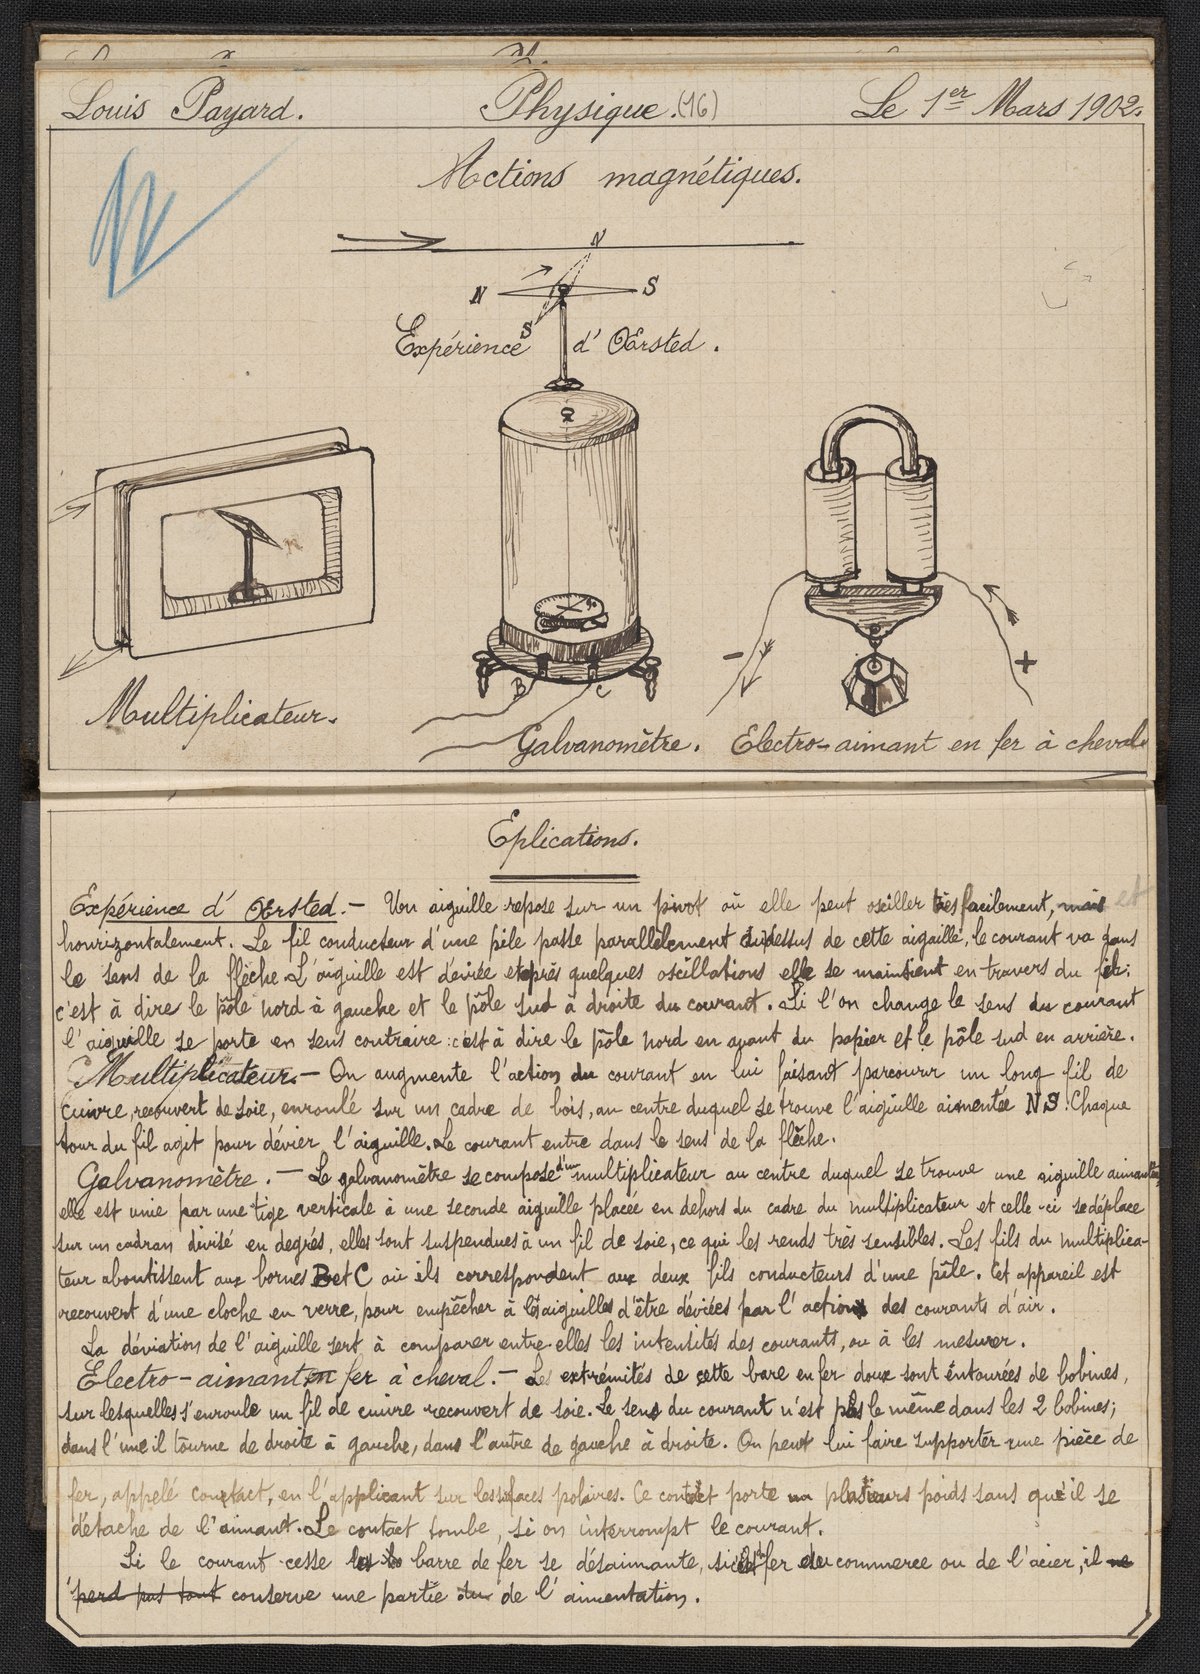 Louis Payard. Physique. (16) Le 1er Mars 1902.
Actions magnétiques.
N
N S
S
Expérience d' Œrsted.
B C
- +
Multiplicateur.
Galvanomètre. Electro-aimant en fer à cheval.
Eplications.
Expérience d' Œrsted. - Une aiguille repose sur un pivot où elle peut osciller très facilement, mais et
hourizontalement. Le fil conducteur d'une pile passe parallèlement au dessus de cette aiguille, le courant va dans
le sens de la flèche. L'aiguille est déviée et après quelques oscillations elle se maintient en travers du fil;
c'est à dire le pôle nord à gauche et le pôle sud à droite du courant. Si l'on change le sens du courant
l'aiguille se porte en sens contraire : c'est à dire le pôle nord en avant du papier et le pôle sud en arrière.
Multiplicateur. - On augmente l'action du courant en lui faisant parcourir un long fil de
cuivre, recouvert de soie, enroulé sur un cadre de bois, au centre duquel se trouve l'aiguille aimentée NS. Chaque
tour du fil agit pour dévier l'aiguille. Le courant entre dans le sens de la flèche.
Galvanomètre. - Le galvanomètre se compose d'un multiplicateur au centre duquel se trouve une aiguille aimantée,
elle est unie par une tige verticale à une seconde aiguille placée en dehors du cadre du multiplicateur et celle-ci se déplace
sur un cadran divisé en degrés, elles sont suspendues à un fil de soie, ce qui les rends très sensibles. Les fils du multiplica-
teur aboutissent aux bornes B et C où ils correspondent aux deux fils conducteurs d'une pile. Cet appareil est
recouvert d'une cloche en verre, pour empêcher à les aiguilles d'être déviées par l'action des courants d'air.
La déviation de l'aiguille sert à comparer entre elles les intensités des courants, ou à les mesurer.
Electro-aimant en fer à cheval. - Les extrémités de cette bare en fer doux sont entourées de bobines,
sur lesquelles s'enroule un fil de cuivre recouvert de soie. Le sens du courant n'est pas le même dans les 2 bobines;
dans l'une il tourne de droite à gauche, dans l'autre de gauche à droite. On peut lui faire supporter une pièce de
fer, appelé contact, en l'applicant sur les surfaces polaires. Ce contact porte plusieurs poids sans qu'il se
détache de l'aimant. Le contact tombe, si on interrompt le courant.
Si le courant cesse la barre de fer se désaimante, si c'est fer du commerce ou de l'acier, il ne
perd pas tout conserve une partie du de l'aimentation.